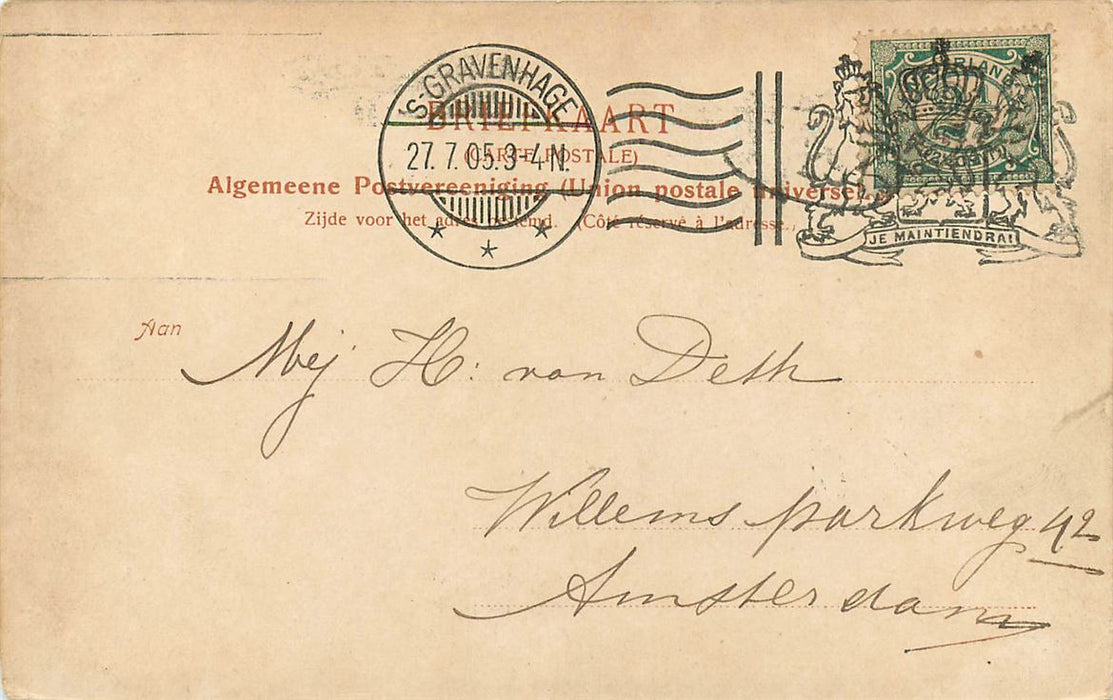 'S-GRAVENHAGE
27.7.05.3-4N.
NEDERLAND
2½
JE MAINTIENDRAI
BRIEFKAART
(CARTE POSTALE)
Algemeene Postvereeniging (Union postale universelle)
Zijde voor het adres bestemd. (Côté réservé à l'adresse.)
Aan
Mej H: van Deth
Willemsparkweg 42
Amsterdam